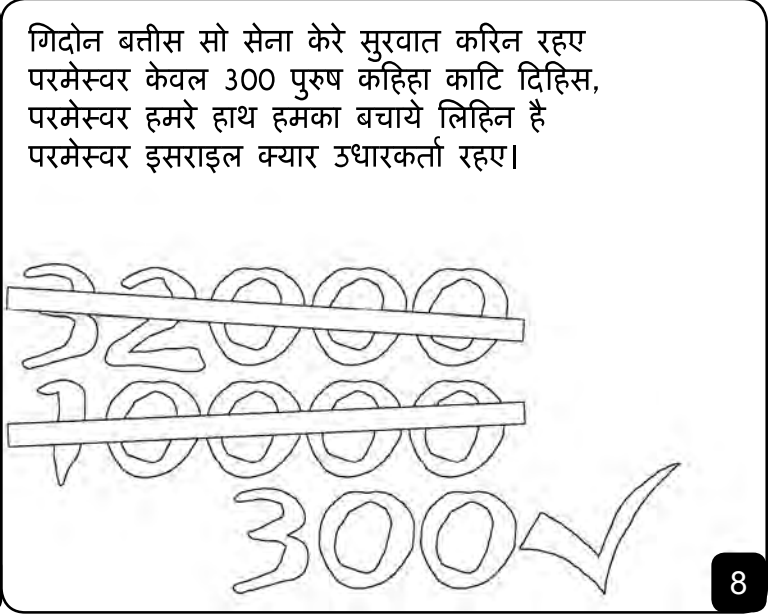 गिदोन बत्तीस सो सेना केरे सुरवात करिन रहए
परमेस्वर केवल 300 पुरुष कहिहा काटि दिहिस,
परमेस्वर हमरे हाथ हमका बचाये लिहिन है
परमेस्वर इसराइल क्यार उधारकर्ता रहए।
32000
10000
300
8